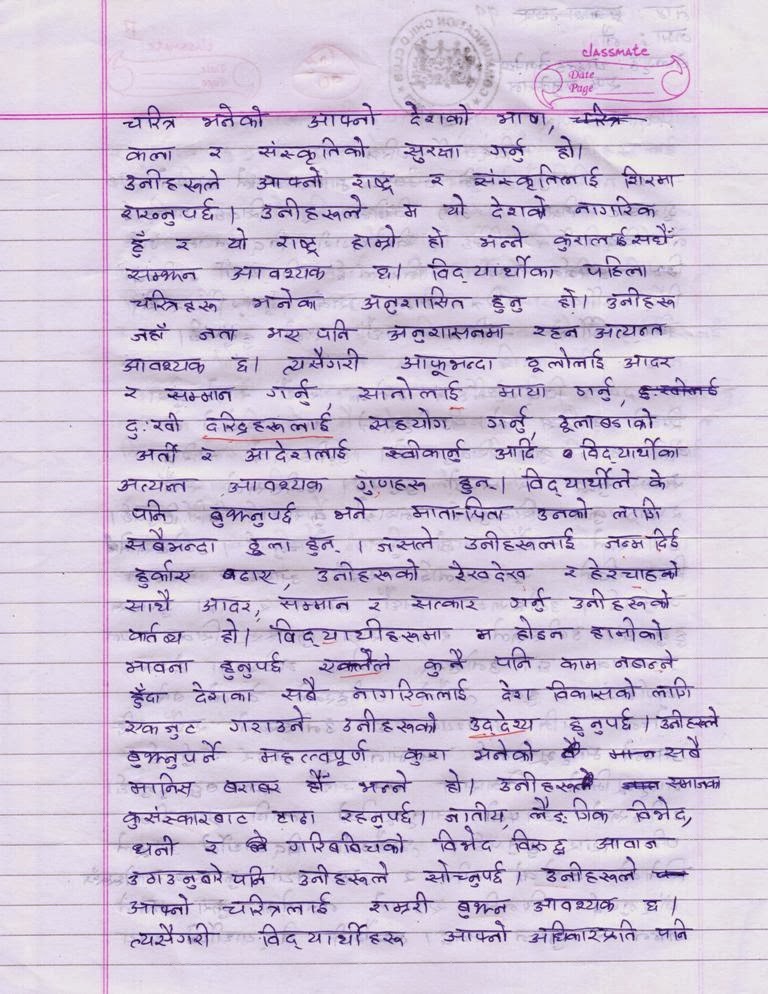 classmate
Date
Page
चरित्र भनेको आफ्नो देशको भाषा,
कला र संस्कृतिको सुरक्षा गर्नु हो।
उनीहरूले आफ्नो राष्ट्र र संस्कृतिलाई शिरमा
राख्नुपर्छ। उनीहरूले म यो देशको नागरिक
हुँ र यो राष्ट्र हाम्रो हो भन्ने कुरालाई सधैँ
सम्झन आवश्यक छ। विद्यार्थीका पहिला
चरित्रहरू भनेका अनुशासित हुनु हो। उनीहरू
जहाँ जता भए पनि अनुशासनमा रहन अत्यन्त
आवश्यक छ। त्यसैगरी आफूभन्दा ठूलोलाई आदर
र सम्मान गर्नु, सानोलाई माया गर्नु,
दुःखी दरिद्रहरूलाई सहयोग गर्नु, ठूलाबडाको
अर्ती र आदेशलाई स्वीकार्नु आदि विद्यार्थीका
अत्यन्त आवश्यक गुणहरू हुन्। विद्यार्थीले के
पनि बुझ्नुपर्छ भने माता-पिता उनको लागि
सबैभन्दा ठूला हुन्। जसले उनीहरूलाई जन्म दिई
हुर्काए बढाए, उनीहरूको रेखदेख र हेरचाहको
साथै आदर, सम्मान र सत्कार गर्नु उनीहरूको
कर्तव्य हो। विद्यार्थीहरूमा म होइन हामीको
भावना हुनुपर्छ एक्लैले कुनै पनि काम नबन्ने
हुँदा देशका सबै नागरिकलाई देश विकासको लागि
एकजुट गराउने उनीहरूको उद्देश्य हुनुपर्छ। उनीहरूले
बुझ्नुपर्ने महत्वपूर्ण कुरा भनेको सबै
मानिस बराबर हौँ भन्ने हो। उनीहरू समाजका
कुसंस्कारबाट टाढा रहनुपर्छ। जातीय, लैङ्गिक विभेद,
धनी र गरिबबिचको विभेद विरुद्ध आवाज
उठाउनुबारे पनि उनीहरूले सोच्नुपर्छ। उनीहरूले
आफ्नो चरित्रलाई राम्ररी बुझ्न आवश्यक छ।
त्यसैगरी विद्यार्थीहरू आफ्नो अधिकारप्रति पनि